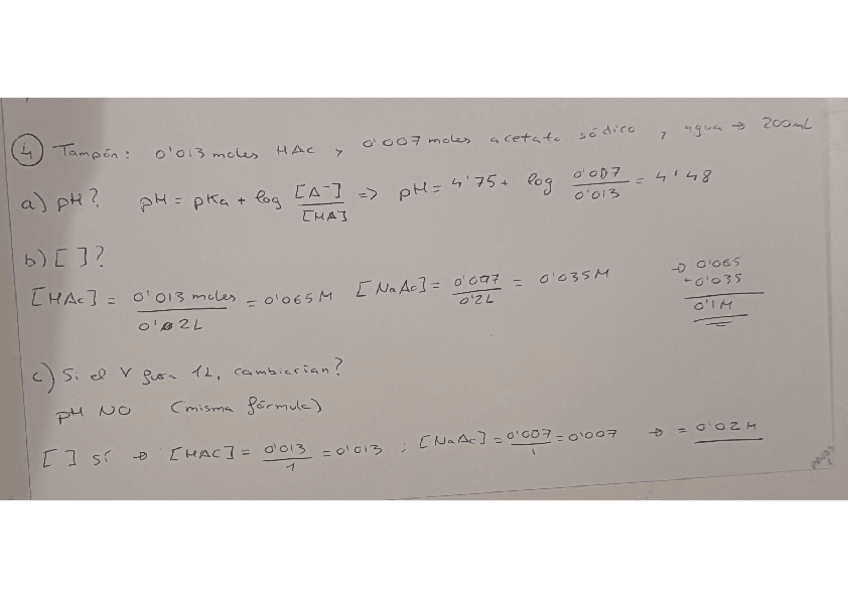 ④ Tampón: 0'013 moles HAc y 0'007 moles acetato sódico, agua → 200mL
a) pH? pH = pKa + log [A⁻]/[HA] => pH = 4'75 + log 0'007/0'013 = 4'48
b) [ ]?
[HAc] = 0'013 moles/0'02L = 0'065M [NaAc] = 0'007/0'2L = 0'035M → 0'065
+0'035
0'1M
c) Si el V fuera 1L, cambiarían?
pH NO (misma fórmula)
[ ] sí → [HAC] = 0'013/1 = 0'013 ; [NaAc] = 0'007/1 = 0'007 → = 0'02M